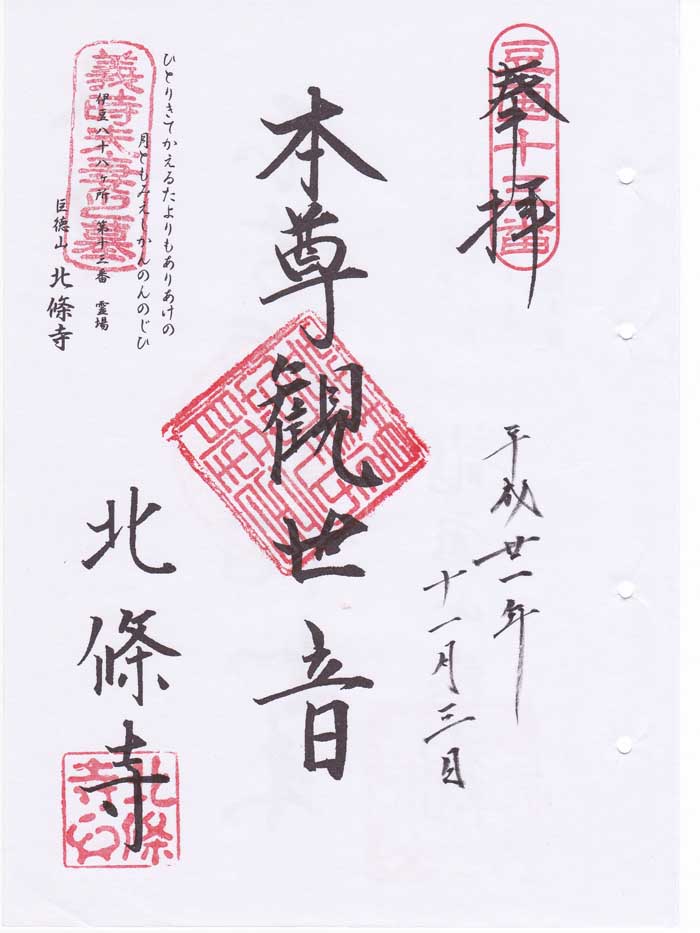 奉拝
豆国十三番
平成廿一年
十一月三日
本尊観世音
ひとりきてかえるたよりもありあけの
月ともみえしかんのんのじひ
伊豆八十八ヶ所 第十三番 霊場
巨徳山 北條寺
義時夫妻之墓
北條寺
北條
寺印